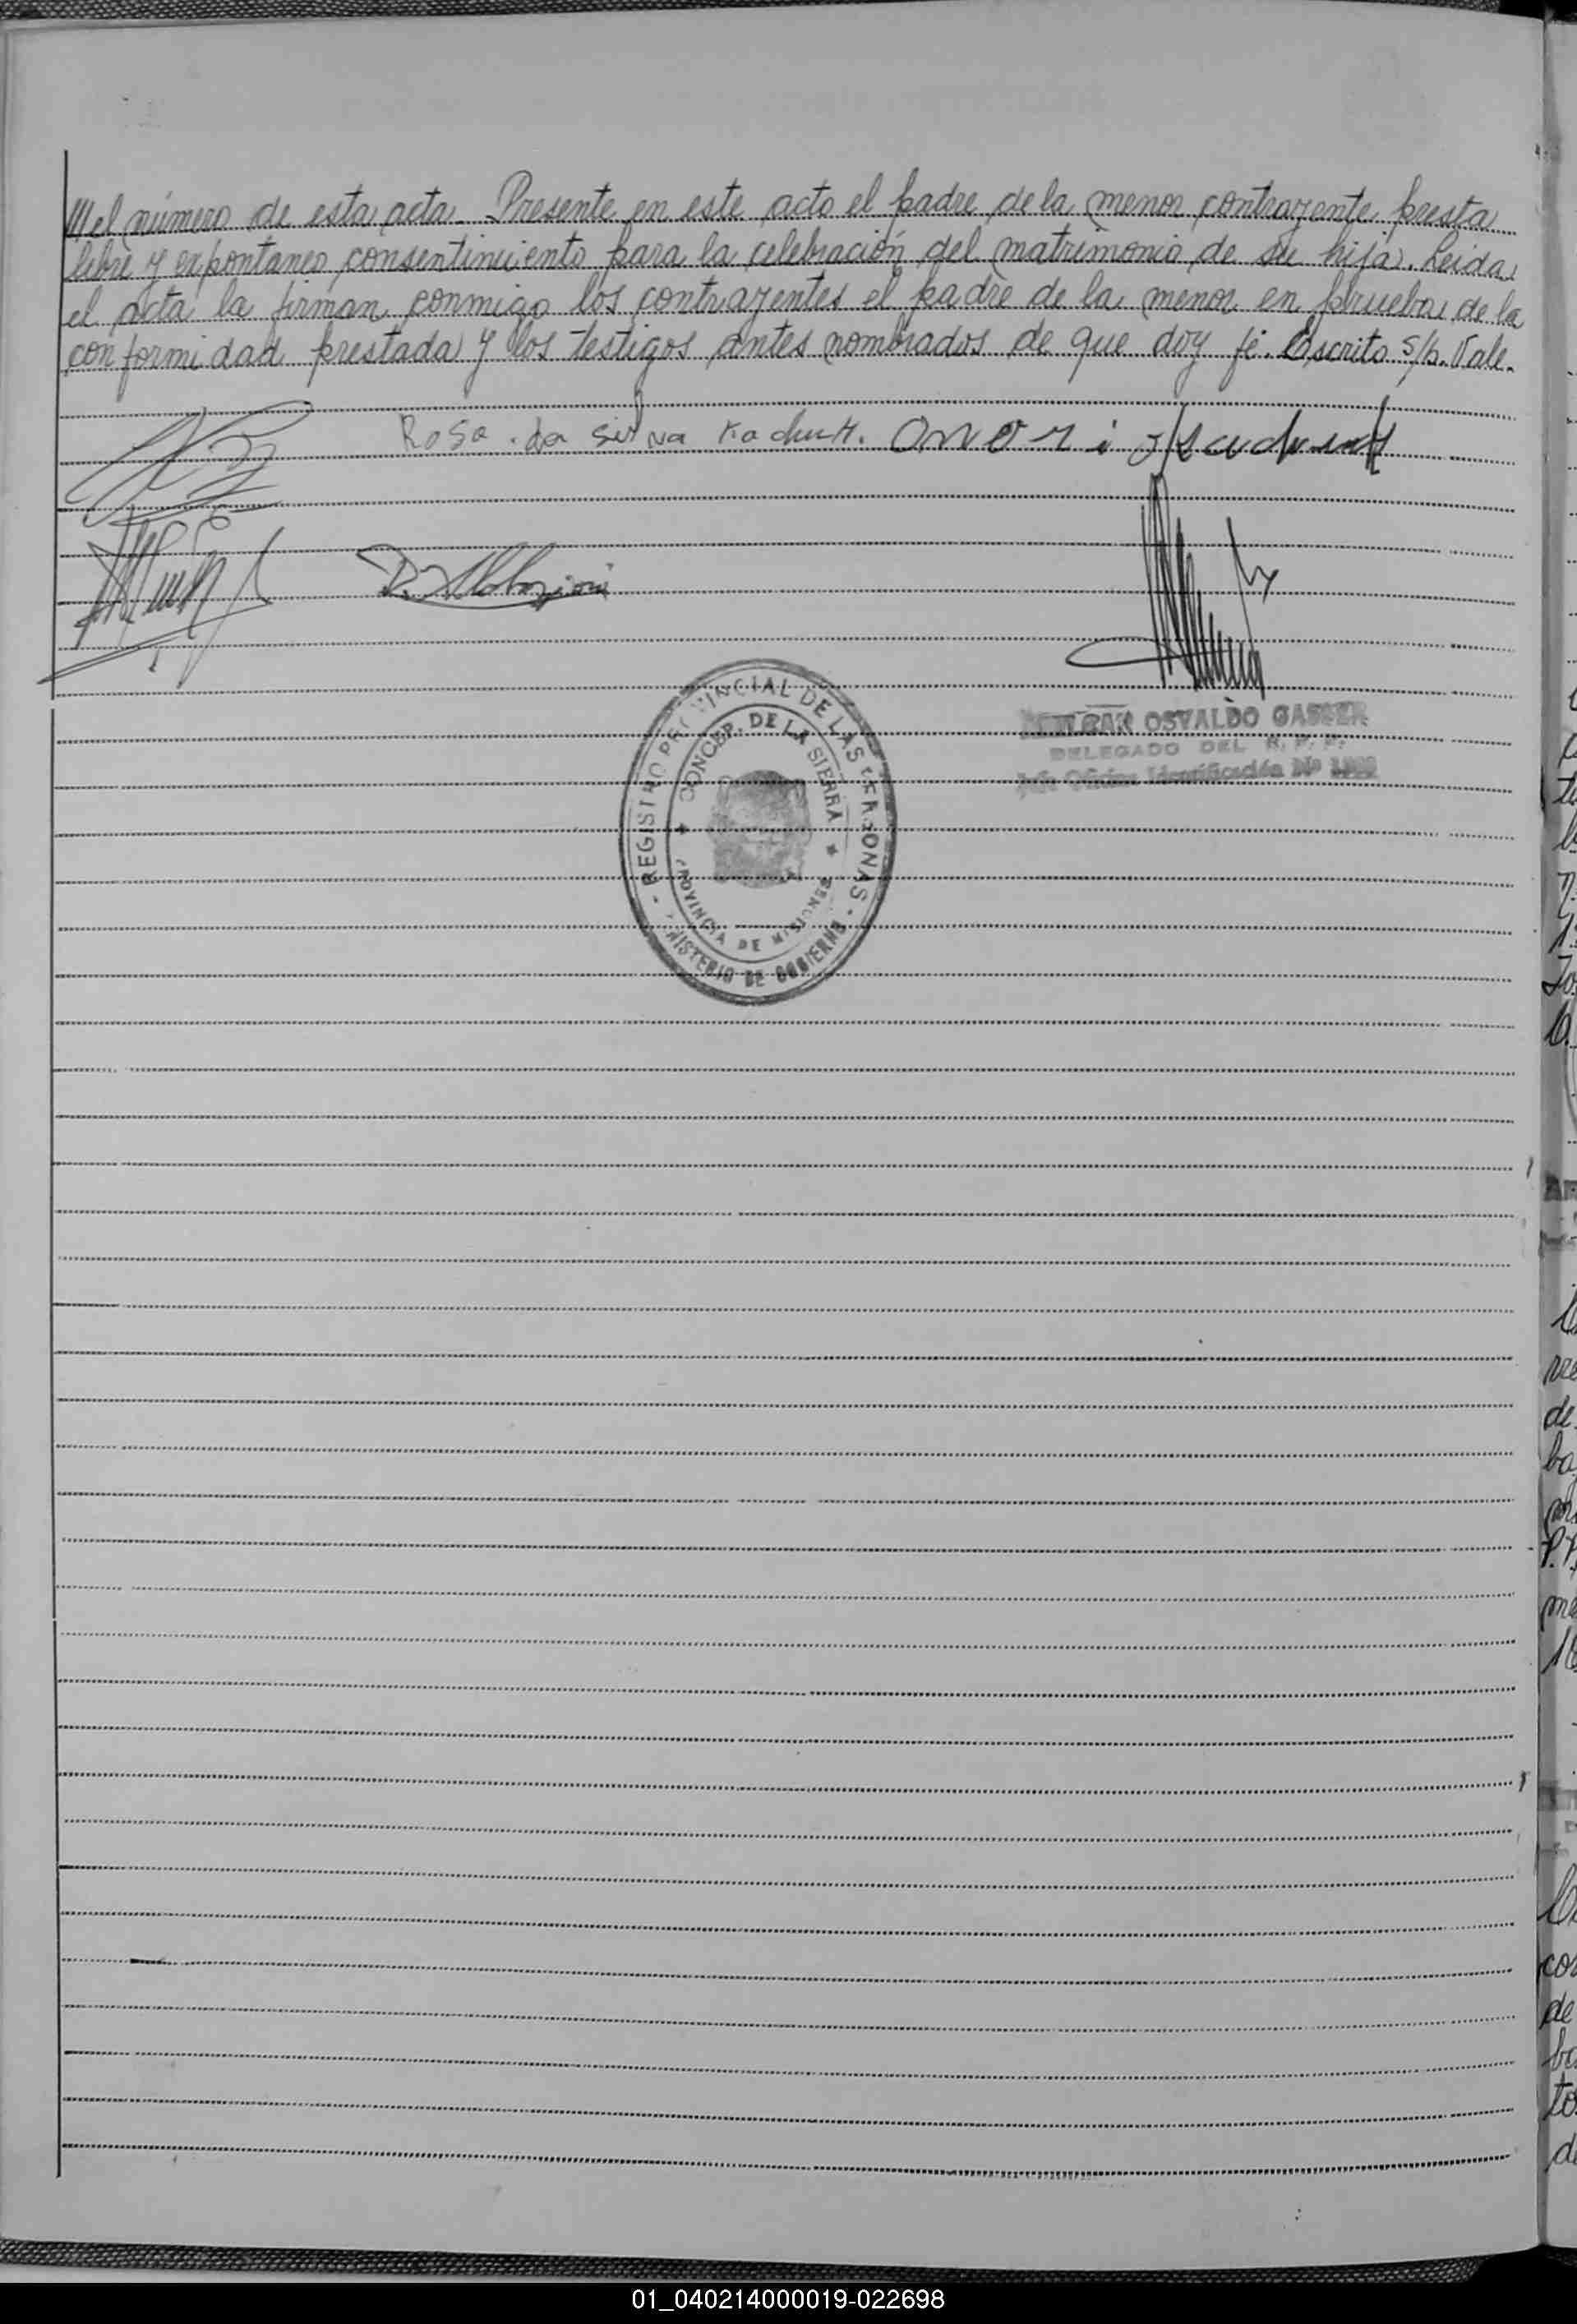 /// el número de esta acta. Presente en este acto el padre de la menor contrayente presta
libre y expontaneo consentimiento para la celebración del matrimonio de su hija. Leida
el acta la firman conmigo los contrayentes el padre de la menor en prueba de la
conformidad prestada y los testigos antes nombrados de que doy fé. Escrito s/b. Vale.
Rosa da silva
OSVALDO GASSER
DELEGADO DEL R. P. P.
Jefe Oficina Identificación Nº
REGISTRO PROVINCIAL DE LAS PERSONAS
CONCEP. DE LA SIERRA
PROVINCIA DE MISIONES
MINISTERIO DE GOBIERNO
01_040214000019-022698